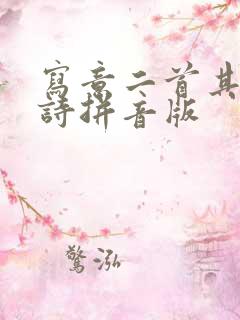 寫意二首其
詩拼音版
驚泓